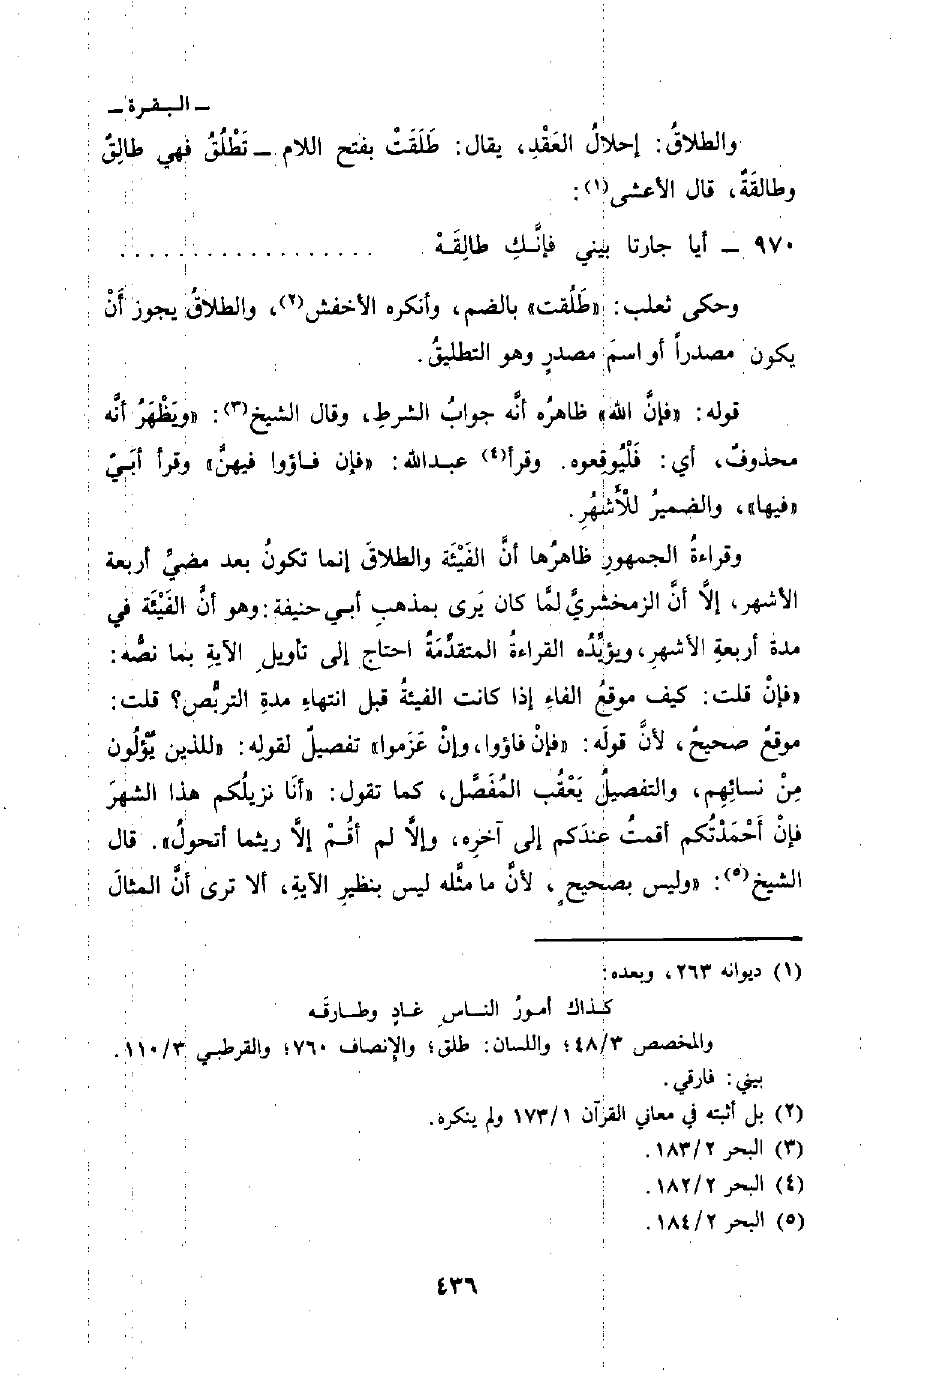 ـ البقرة ـ
والطلاقُ: إحلالُ العَقْدِ، يقال: طَلَقَتْ بفتح اللام ـ تَطْلُقُ فهي طالِقٌ
وطالقَةٌ، قال الأعشى(١):
٩٧٠ ـ أيا جارتا بِيني فإنَّكِ طالِقَهْ . . . . . . . . . . . . . . . . . .
وحكى ثعلب: «طَلُقت» بالضم، وأنكره الأخفش(٢)، والطلاقُ يجوز أَنْ
يكون مصدراً أو اسمَ مصدرٍ وهو التطليقُ.
قوله: «فإنَّ الله» ظاهرُه أنَّه جوابُ الشرطِ، وقال الشيخ(٣): «ويَظْهَرُ أنَّه
محذوفٌ، أي: فَلْيُوقِعوه. وقرأ(٤) عبدالله: «فإن فاؤوا فيهنَّ» وقرأ أُبَيّ
«فيها»، والضميرُ للْأَشْهُرِ.
وقراءةُ الجمهورِ ظاهرُها أنَّ الفَيْئَة والطلاقَ إنما تكونُ بعد مضيِّ أربعة
الأشهر، إلَّا أنَّ الزمخشريَّ لمَّا كان يَرى بمذهبِ أبي حنيفة: وهو أنَّ الفَيْئَة في
مدة أربعةِ الأشهرِ، ويؤيِّدُه القراءةُ المتقدِّمَةُ احتاج إلى تأويلِ الآيةِ بما نصُّه:
«فإنْ قلت: كيف موقعُ الفاءِ إذا كانت الفيئةُ قبل انتهاءِ مدةِ التربُّص؟ قلت:
موقعٌ صحيحٌ، لأنَّ قولَه: «فإنْ فاؤوا، وإنْ عَزَموا» تفصيلٌ لقولِه: «للذين يُؤْلُون
مِنْ نسائِهم، والتفصيلُ يَعْقُب المُفَصَّل، كما تقول: «أنَا نزيلُكم هذا الشهرَ
فإنْ أَحْمَدْتُكم أقمتُ عندَكم إلى آخرِه، وإلَّا لم أقُمْ إلَّا ريثما أتحولُ». قال
الشيخ(٥): «وليس بصحيحٍ، لأنَّ ما مثَّله ليس بنظيرِ الآيةِ، ألا ترى أنَّ المثالَ
(١) ديوانه ٢٦٣، وبعده:
كذاك أمورُ الناسِ غادٍ وطارقَه
والمخصص ٤٨/٣؛ واللسان: طلق؛ والإنصاف ٧٦٠؛ والقرطبي ١١٠/٣.
بيني: فارقي.
(٢) بل أثبته في معاني القرآن ١٧٣/١ ولم ينكره.
(٣) البحر ١٨٣/٢.
(٤) البحر ١٨٢/٢.
(٥) البحر ١٨٤/٢.
٤٣٦